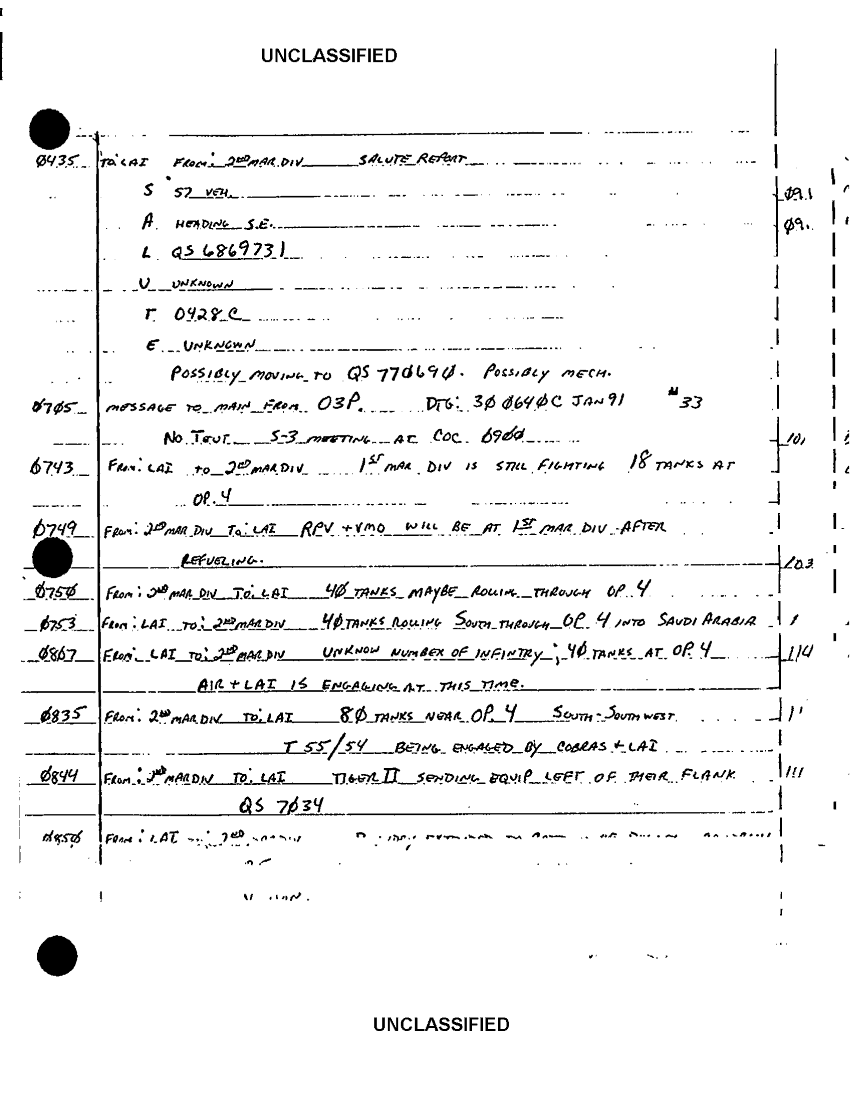 UNCLASSIFIED
0435 TO: LAI FROM: 2ND MAR DIV SALUTE REPORT
S 57 VEH. 091
A HEADING S.E. 09.
L QS 6869731
U UNKNOWN
T 0428C
E UNKNOWN
POSSIBLY MOVING TO QS 770690. POSSIBLY MECH.
0705 MESSAGE TO MAIN FROM 03P. DTG: 300640C JAN 91 #33
S-3 MEETING AT COC 0900 101
0743 FROM: LAI TO 2ND MAR DIV 1ST MAR DIV IS STILL FIGHTING 18 TANKS AT
OP. 4
0749 FROM: 2ND MAR DIV TO: LAI RPV + VMO WILL BE AT 1ST MAR DIV AFTER
REFUELING. 103
0750 FROM: 2ND MAR DIV TO: LAI 40 TANKS MAYBE ROLLING THROUGH OP. 4
0753 FROM: LAI TO: 2ND MAR DIV 40 TANKS ROLLING SOUTH THROUGH OP. 4 INTO SAUDI ARABIA
0807 FROM: LAI TO: 2ND MAR DIV UNKNOW NUMBER OF INFINTRY; 40 TANKS AT OP. 4 114
AIR + LAI IS ENGAGING AT THIS TIME.
0835 FROM: 2ND MAR DIV TO: LAI 80 TANKS NEAR OP. 4 SOUTH-SOUTHWEST
T 55/54 BEING ENGAGED BY COBRAS + LAI
0844 FROM: 2ND MAR DIV TO: LAI TIGER II SENDING EQUIP LEFT OF THEIR FLANK
QS 7034
0850 FROM: LAI 2ND
UNCLASSIFIED